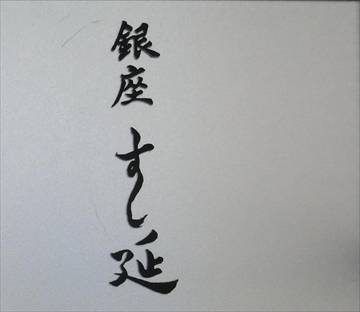 銀座すし延